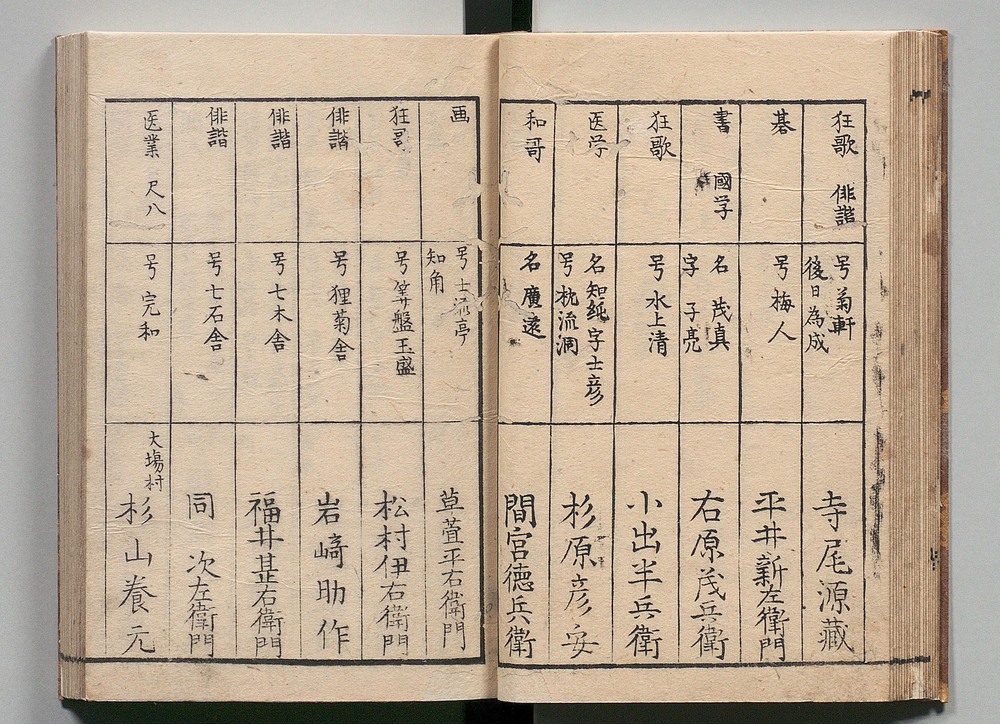 狂歌 俳諧
号 菊軒
後日為成
寺尾源藏
碁
号 梅人
平井新左衛門
書 國学
名 茂真
字 子亮
右原茂兵衛
狂歌
号 水上清
小出半兵衛
医学
名 知純 字 士彦
号 枕流洞
杉原彦安
和哥
名 廣遠
間宮德兵衛
画
号 士流亭
知角
草萱平右衛門
狂哥
号 算盤玉盛
松村伊右衛門
俳諧
号 狸菊舎
岩﨑助作
俳諧
号 七木舎
福井甚右衛門
俳諧
号 七石舎
同 次左衛門
医業 尺八
号 完和
大塲村
杉山養元